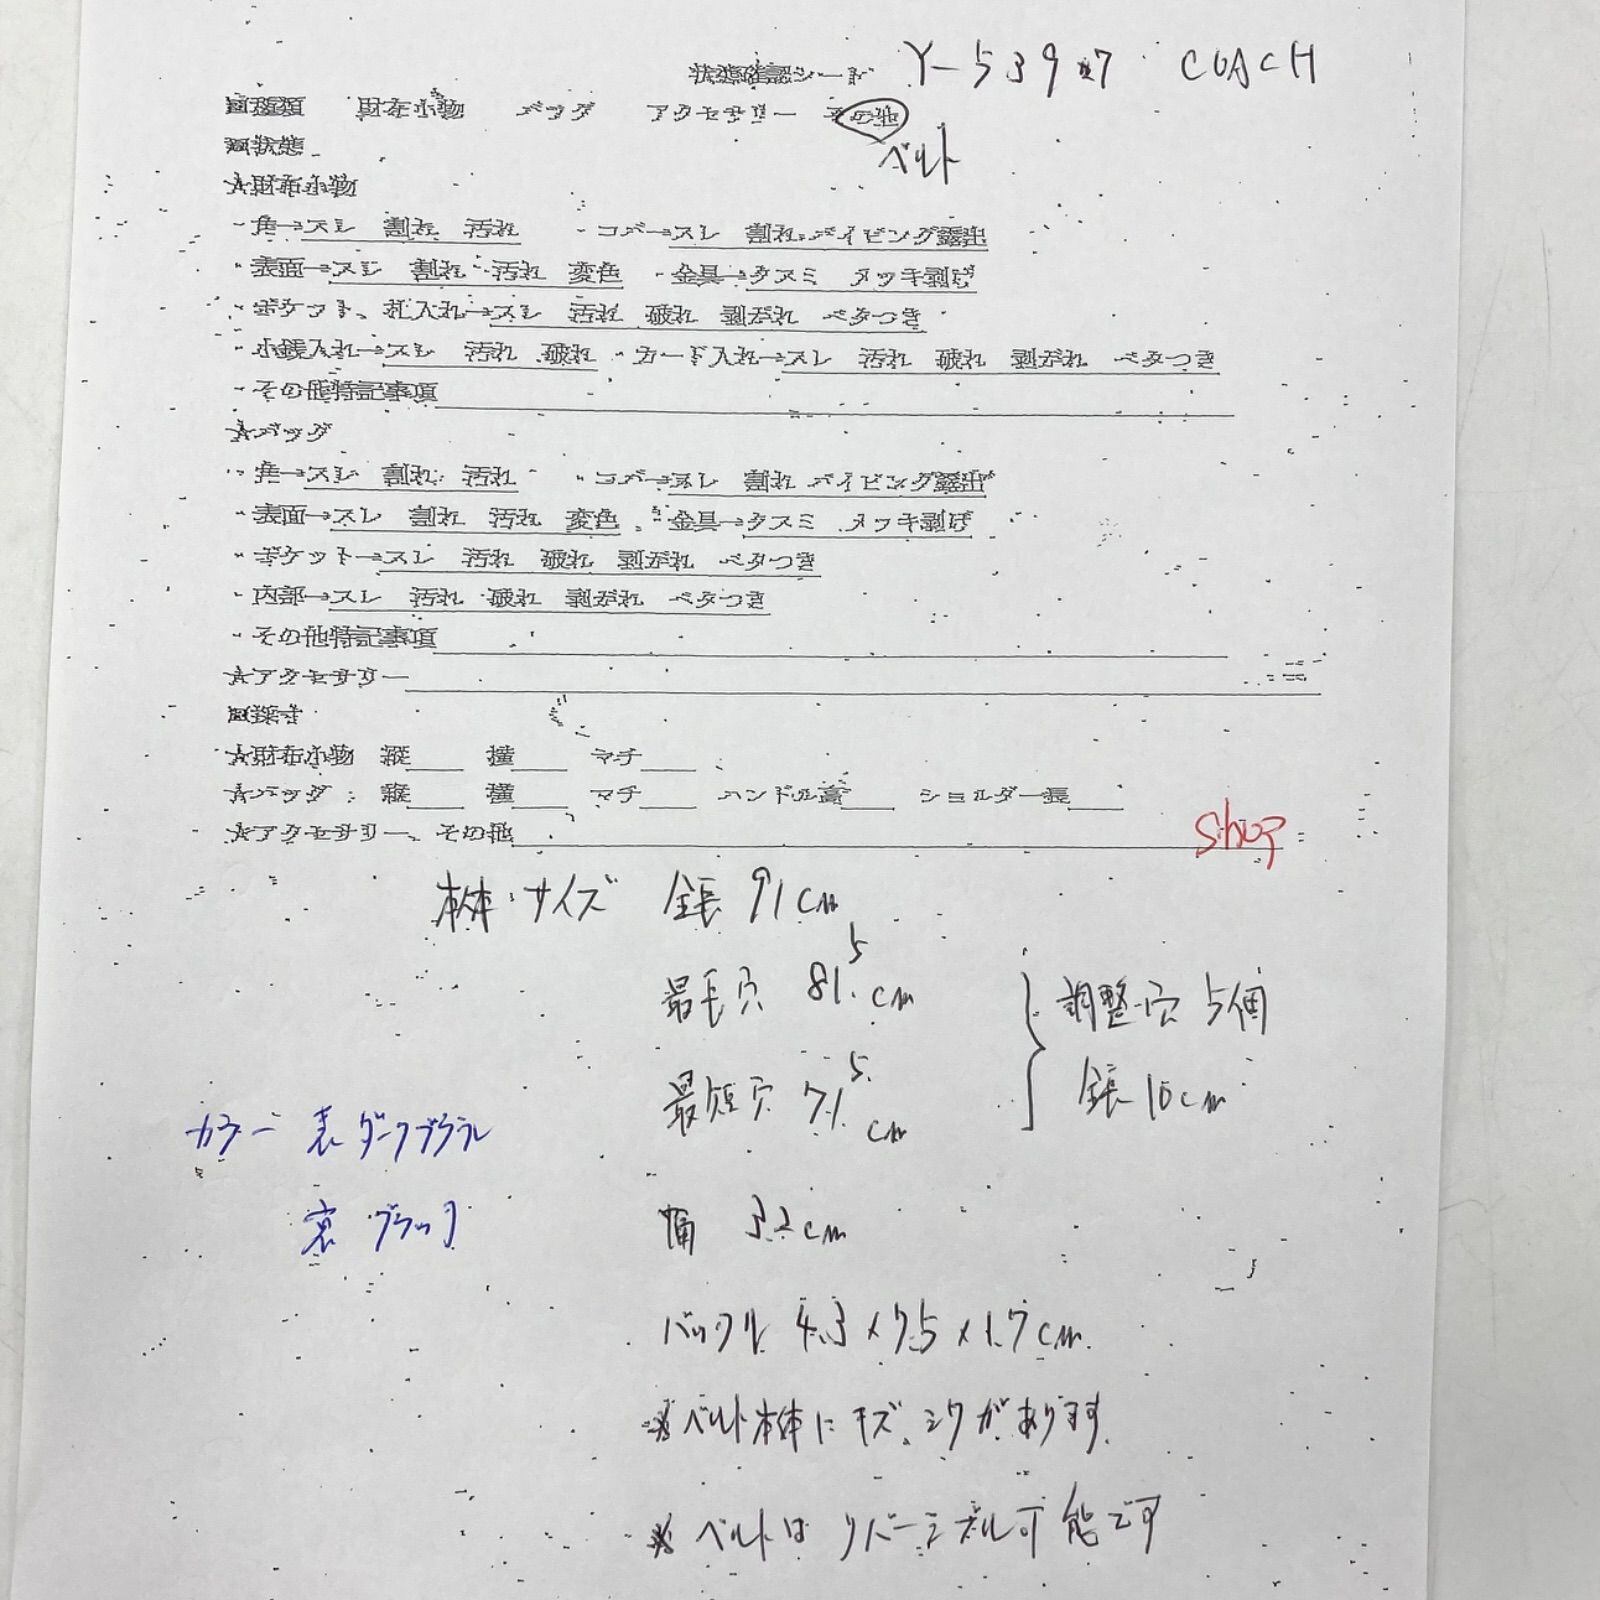 状態確認シード Y-53927 COACH
種類 財布小物 バッグ アクセサリー その他
ベルト
状態
★財布小物
・角→スレ 割れ 汚れ ・コバ→スレ 割れ パイピング露出
・表面→スレ 割れ 汚れ 変色 ・金具→クスミ メッキ剥げ
・ポケット、札入れ→スレ 汚れ 破れ 剥がれ ベタつき
・小銭入れ→スレ 汚れ 破れ ・カード入れ→スレ 汚れ 破れ 剥がれ ベタつき
・その他特記事項
★バッグ
・角→スレ 割れ 汚れ ・コバ→スレ 割れ パイピング露出
・表面→スレ 割れ 汚れ 変色 ・金具→クスミ メッキ剥げ
・ポケット→スレ 汚れ 破れ 剥がれ ベタつき
・内部→スレ 汚れ 破れ 剥がれ ベタつき
・その他特記事項
★アクセサリー
採寸
★財布小物 縦 横 マチ
★バッグ 縦 横 マチ ハンドル高 ショルダー長
★アクセサリー、その他
shop
本体サイズ 全長 91cm
最長穴 81.5cm
調整穴 5個
最短穴 71.5cm
全長 10cm
カラー 表 ダークブラウン
裏 ブラック
幅 3.2cm
バックル 4.3×7.5×1.7cm
※ベルト本体にキズ、シワがあります。
※ベルトはリバーシブル可能です